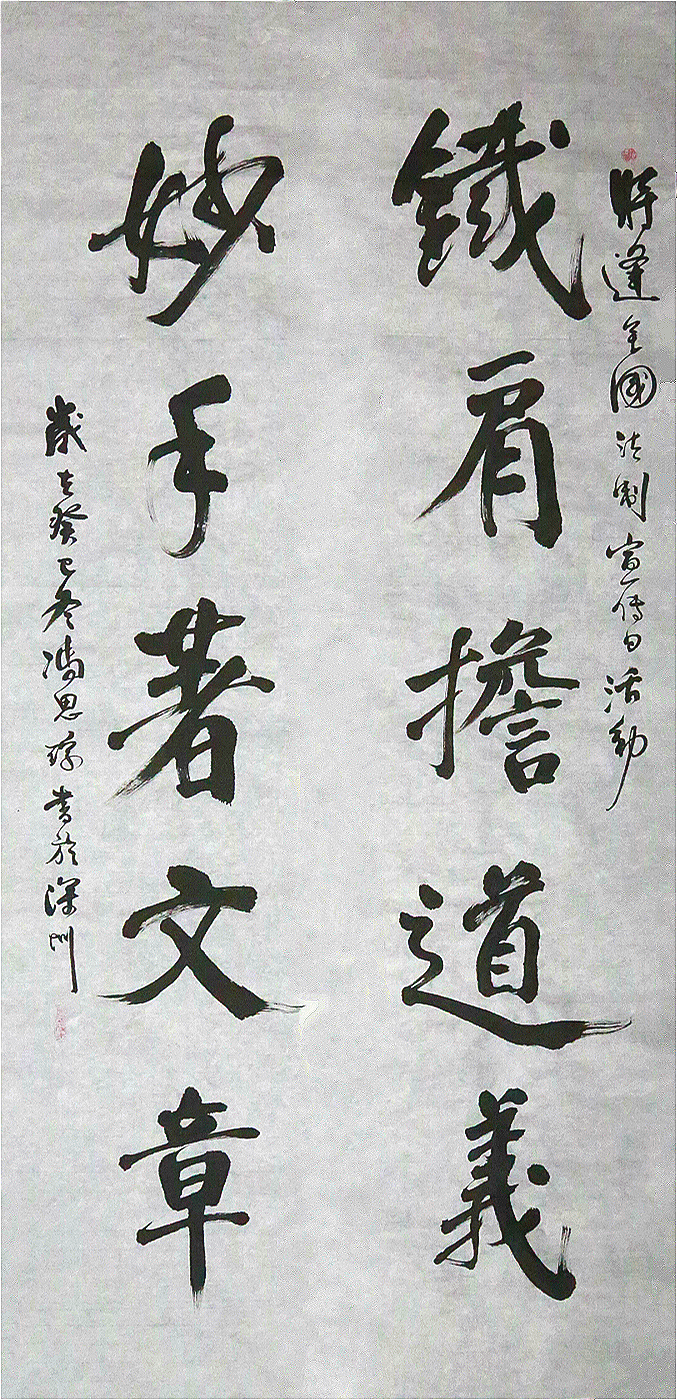 時逢全國法制宣傳日活動
鐵肩擔道義
妙手著文章
歲在癸巳冬馮思琼書於深圳